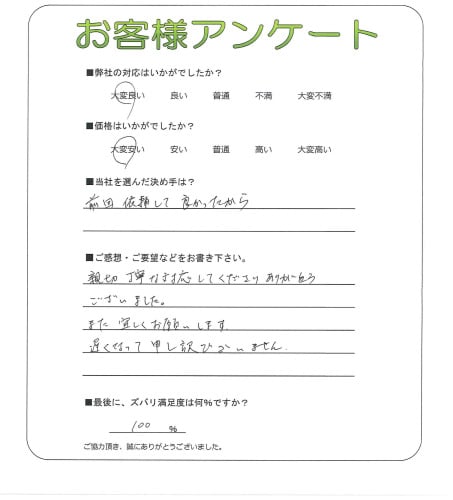 お客様アンケート
■弊社の対応はいかがでしたか?
大変良い 良い 普通 不満 大変不満
■価格はいかがでしたか?
大変安い 安い 普通 高い 大変高い
■当社を選んだ決め手は?
前回 依頼して 良かったから
■ご感想・ご要望などをお書き下さい。
親切 丁寧な対応してくださり ありがとう
ございました。
また 宜しくお願いします.
遅くなって 申し訳ございません.
■最後に、ズバリ満足度は何%ですか?
100 %
ご協力頂き、誠にありがとうございました。